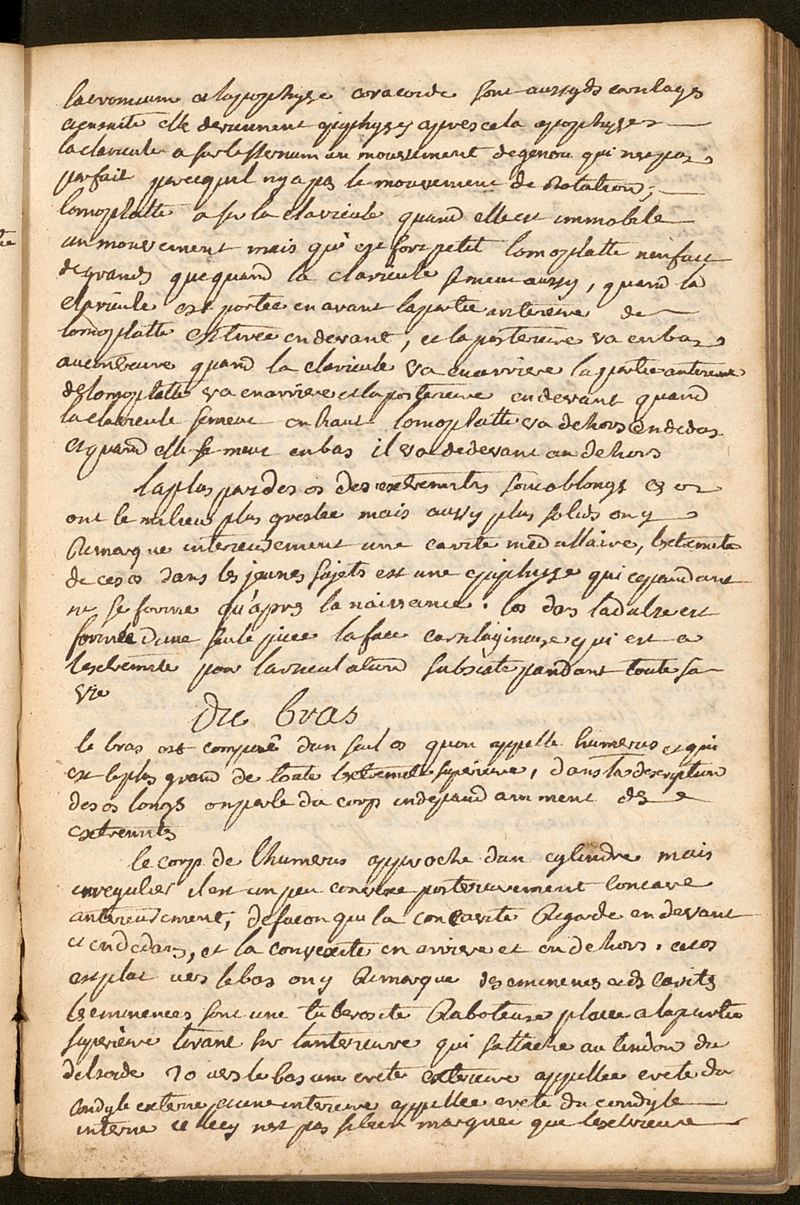 lacromium et lapophyse coracoide sont aussy des cartilages
ensuite elle deviennent epiphyses apres cela apophyses
la clavicule a sur le sternum un mouvement de genou qui nest pas
parfait parcequil ny a pas le mouvement de Rotation,
lomoplatte a sur la clavicule quand elle est immobile
un mouvement mais qui est fort petit lomoplatte nen fait
de grands que quand la clavicule se meut aussy, quand la
clavicule est portée en avant la partie anterieure de
lomoplatte est tirée en devant, et la posterieure va en bas
au contraire quand la clavicule va en arriere la partie anterieure
de lomoplatte va en arriere et la posterieure en devant quand
la clavicule se meut en haut lomoplatte va de hors en dedans
et quand elle se meut en bas il va de devant en dehors
la plus part des os des extremités sont oblongs et
ont le milieu plus greslee mais aussy plus solids on y
Remarque interieusement une cavité medullaire, lextremité
de ces os dans les jeunes sujets est une epiphyse qui cependant
ne se forme qu'apres la naissance. los dans ladulte est
formée dune seule piece la face cartilagineuse qui est a
lextremité pour larticulation subsiste pandant toute sa
vie
Du bras
le bras est composé dun seul os quon appelle humerus et qui
est le plus grand de toute lextremité superieure, dans la description
des os longs on parle du corp independamment des
extremités
le corp de lhumerus approche dun cylindre mais
irregulier il est un peu convexe posterieurement concave
anterieusement, de facon que la concavité Regarde en devant
et en dedans, et la convexité en arriere et en dehors. cet os
est plat vers le bas on y Remarque des eminences et des cavités
les eminences sont une tuberosité Raboteuse placee a la partie
superieure tirant sur lanterieure qui sattache au tendon du
deltoide 20 vers le bas une crete exterieure appellee crete du
condyle externe et une interieure appellee crete du condyle
interne celle cy nest pas si bien marquee que lexterieure